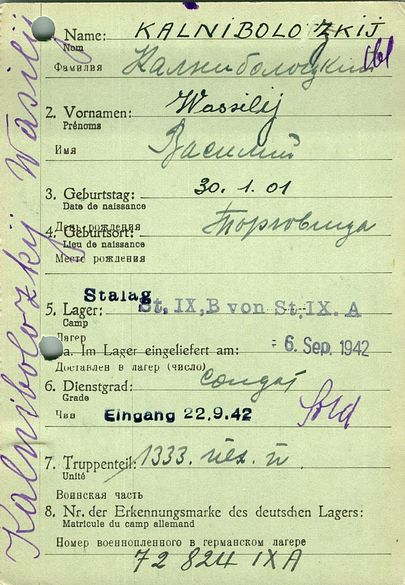 Kalnibolozkij Wasilij
1. Name: KALNIBOLOZKIJ
Nom
Фамилия Калниболоцкий
2. Vornamen: Wassilij
Prénoms
Имя Василий
3. Geburtstag: 30.1.01
Date de naissance
День рождения
4. Geburtsort: Торговица
Lieu de naissance
Место рождения
Stalag
5. Lager: St. IX, B von St, IX. A
Camp
Лагер
a. Im Lager eingeliefert am: - 6. Sep. 1942
Доставлен в лагер (число)
6. Dienstgrad: солдат
Grade Sold
Чин Eingang 22.9.42
7. Truppenteil: 1333.
Unité
Воинская часть
8. Nr. der Erkennungsmarke des deutschen Lagers:
Matricule du camp allemand
Номер военнопленного в германском лагере
72 824 IX A